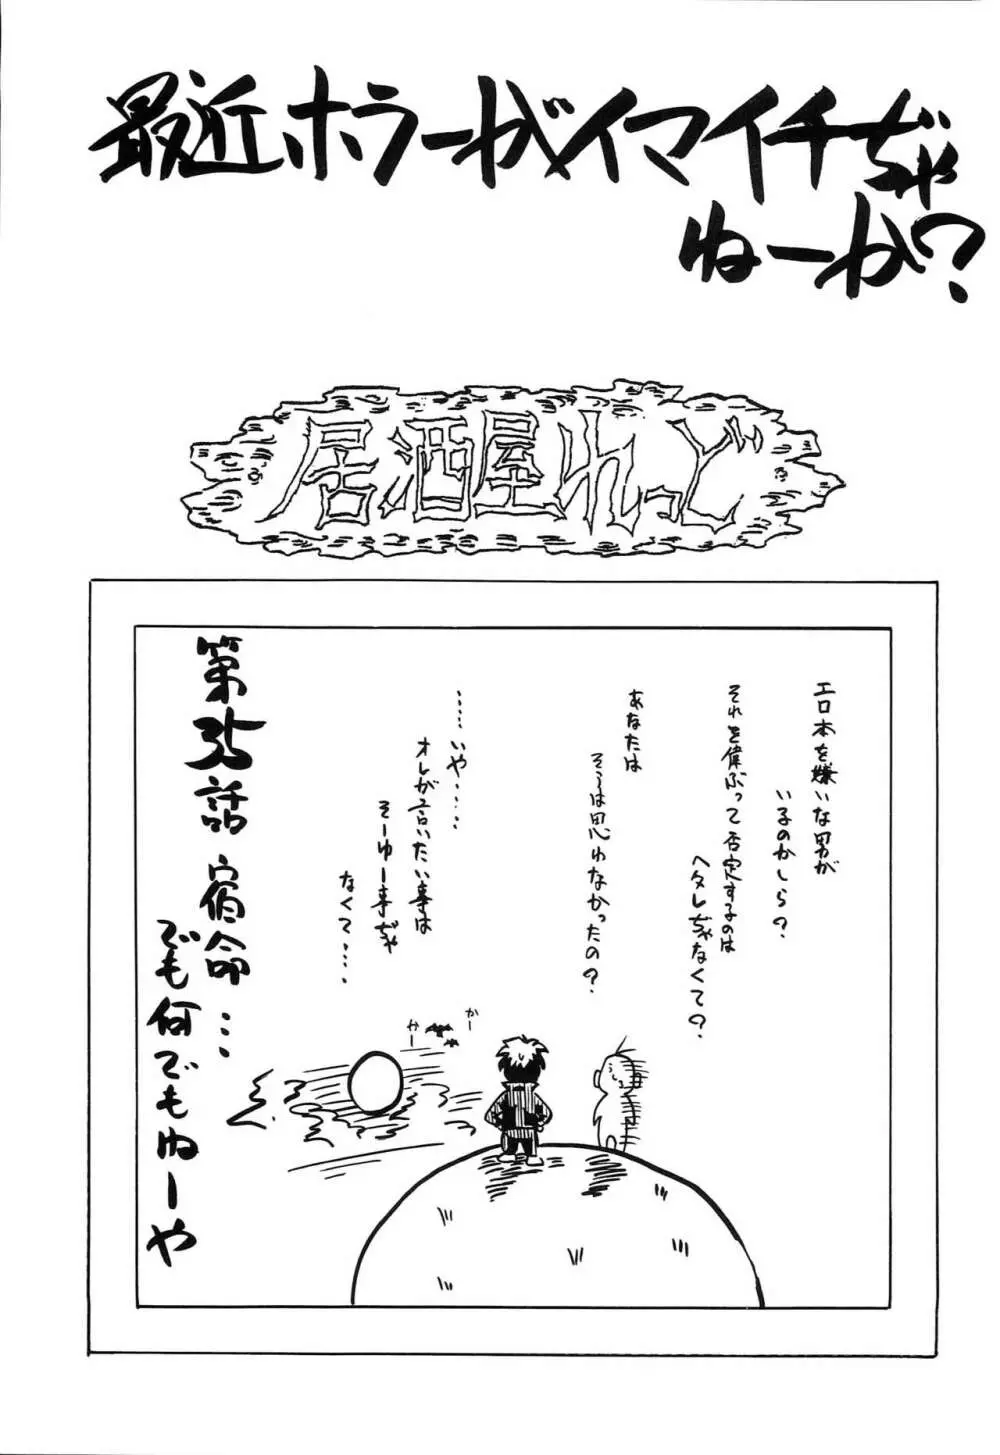 最近ホラーがイマイチぢゃ
ねーか?
居酒屋れっど
エロ本を嫌いな男が
いるのかしら?
それを偉ぶって否定するのは
ヘタレぢゃなくて?
あなたは
そうは思わなかったの?
……いや……
オレが言いたい事は
そーゆー事ぢゃ
なくて……
かー
かー
第35話 宿命…
でも何でもねーや